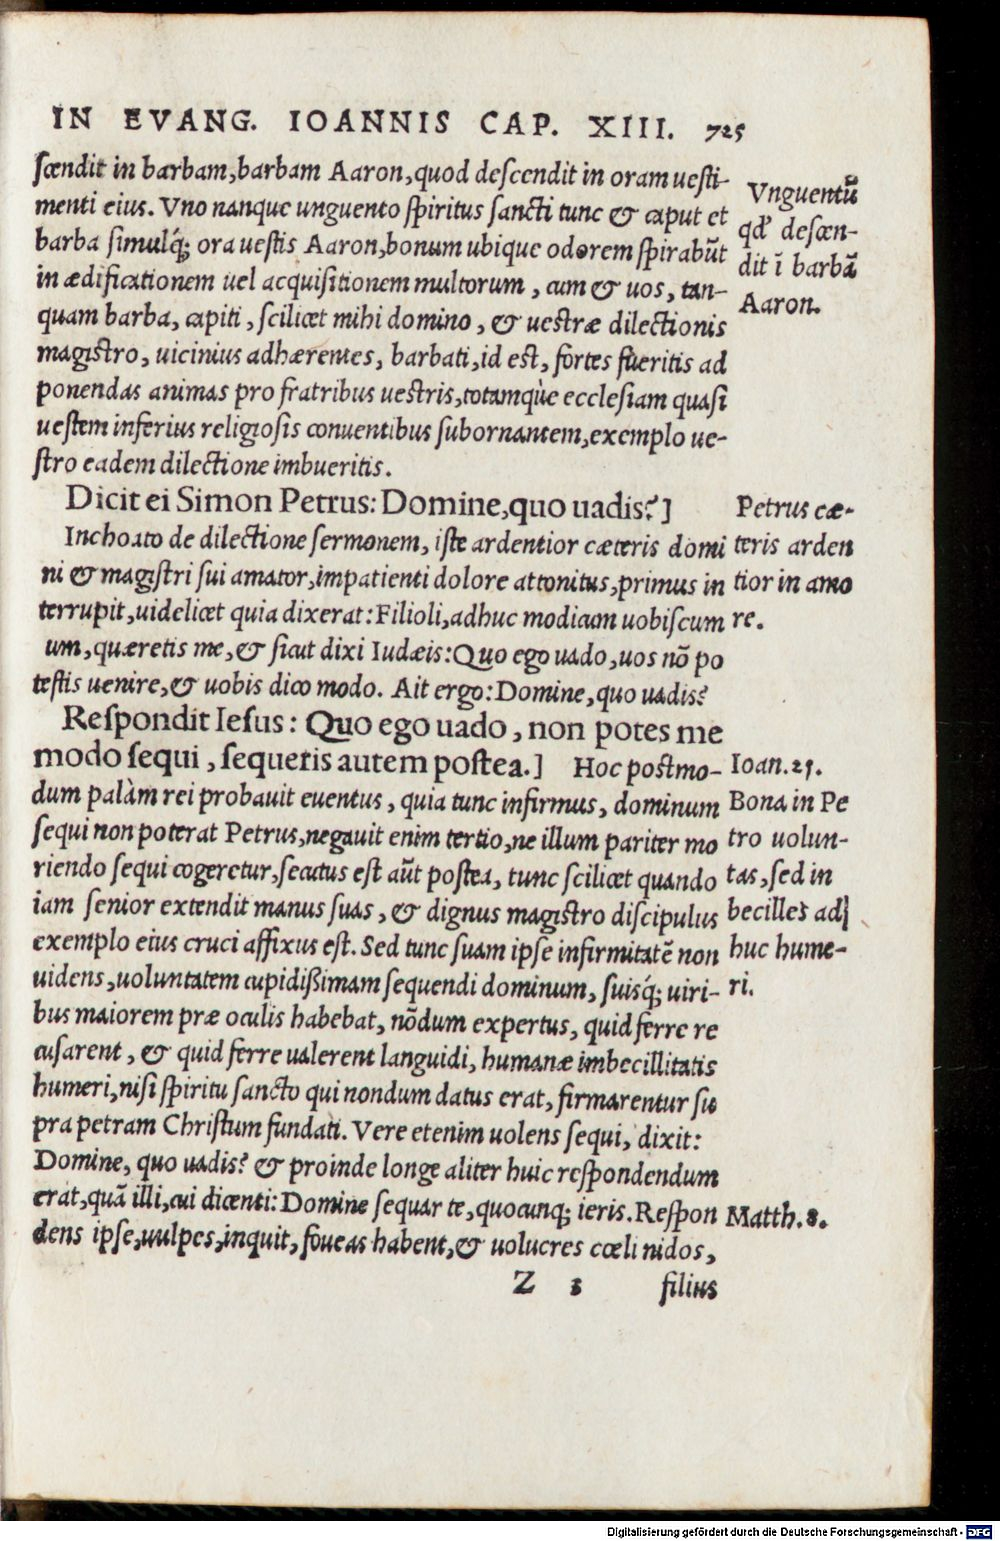 IN EVANG. IOANNIS CAP. XIII. 725
scendit in barbam, barbam Aaron, quod descendit in oram uesti-
menti eius. Vno nanque unguento spiritus sancti tunc & caput et
barba simulq́; ora uestis Aaron, bonum ubique odorem spirabũt
in ædificationem uel acquisitionem multorum, cum & uos, tan-
quam barba, capiti, scilicet mihi domino, & uestræ dilectionis
magistro, uicinius adhærentes, barbati, id est, fortes fueritis ad
ponendas animas pro fratribus uestris, totamque ecclesiam quasi
uestem inferius religiosis conuentibus subornantem, exemplo ue-
stro eadem dilectione imbueritis.
Vnguentũ
qđ descen-
dit ĩ barbã
Aaron.
Dicit ei Simon Petrus: Domine, quo uadis?]
Inchoato de dilectione sermonem, iste ardentior cæteris domi
ni & magistri sui amator, impatienti dolore attonitus, primus in
terrupit, uidelicet quia dixerat: Filioli, adhuc modicum uobiscum
um, quæretis me, & sicut dixi Iudæis: Quo ego uado, uos nõ po
testis uenire, & uobis dico modo. Ait ergo: Domine, quo uadis?
Petrus cæ-
teris arden
tior in amo
re.
Respondit Iesus: Quo ego uado, non potes me
modo sequi, sequeris autem postea.] Hoc postmo-
dum palàm rei probauit euentus, quia tunc infirmus, dominum
sequi non poterat Petrus, negauit enim tertio, ne illum pariter mo
riendo sequi cogeretur, secutus est aũt postea, tunc scilicet quando
iam senior extendit manus suas, & dignus magistro discipulus
exemplo eius cruci affixus est. Sed tunc suam ipse infirmitatẽ non
uidens, uoluntatem cupidißimam sequendi dominum, suisq́; uiri-
bus maiorem præ oculis habebat, nõdum expertus, quid ferre re
cusarent, & quid ferre ualerent languidi, humanæ imbecillitatis
humeri, nisi spiritu sancto qui nondum datus erat, firmarentur su
pra petram Christum fundati. Vere etenim uolens sequi, dixit:
Domine, quo uadis? & proinde longe aliter huic respondendum
erat, quã illi, cui dicenti: Domine sequar te, quocunq; ieris. Respon
dens ipse, uulpes, inquit, foueas habent, & uolucres cœli nidos,
Ioan. 21.
Bona in Pe
tro uolun-
tas, sed in
becilles ad
huc hume-
ri.
Matth. 8.
Z 3 filius
Digitalisierung gefördert durch die Deutsche Forschungsgemeinschaft - DFG